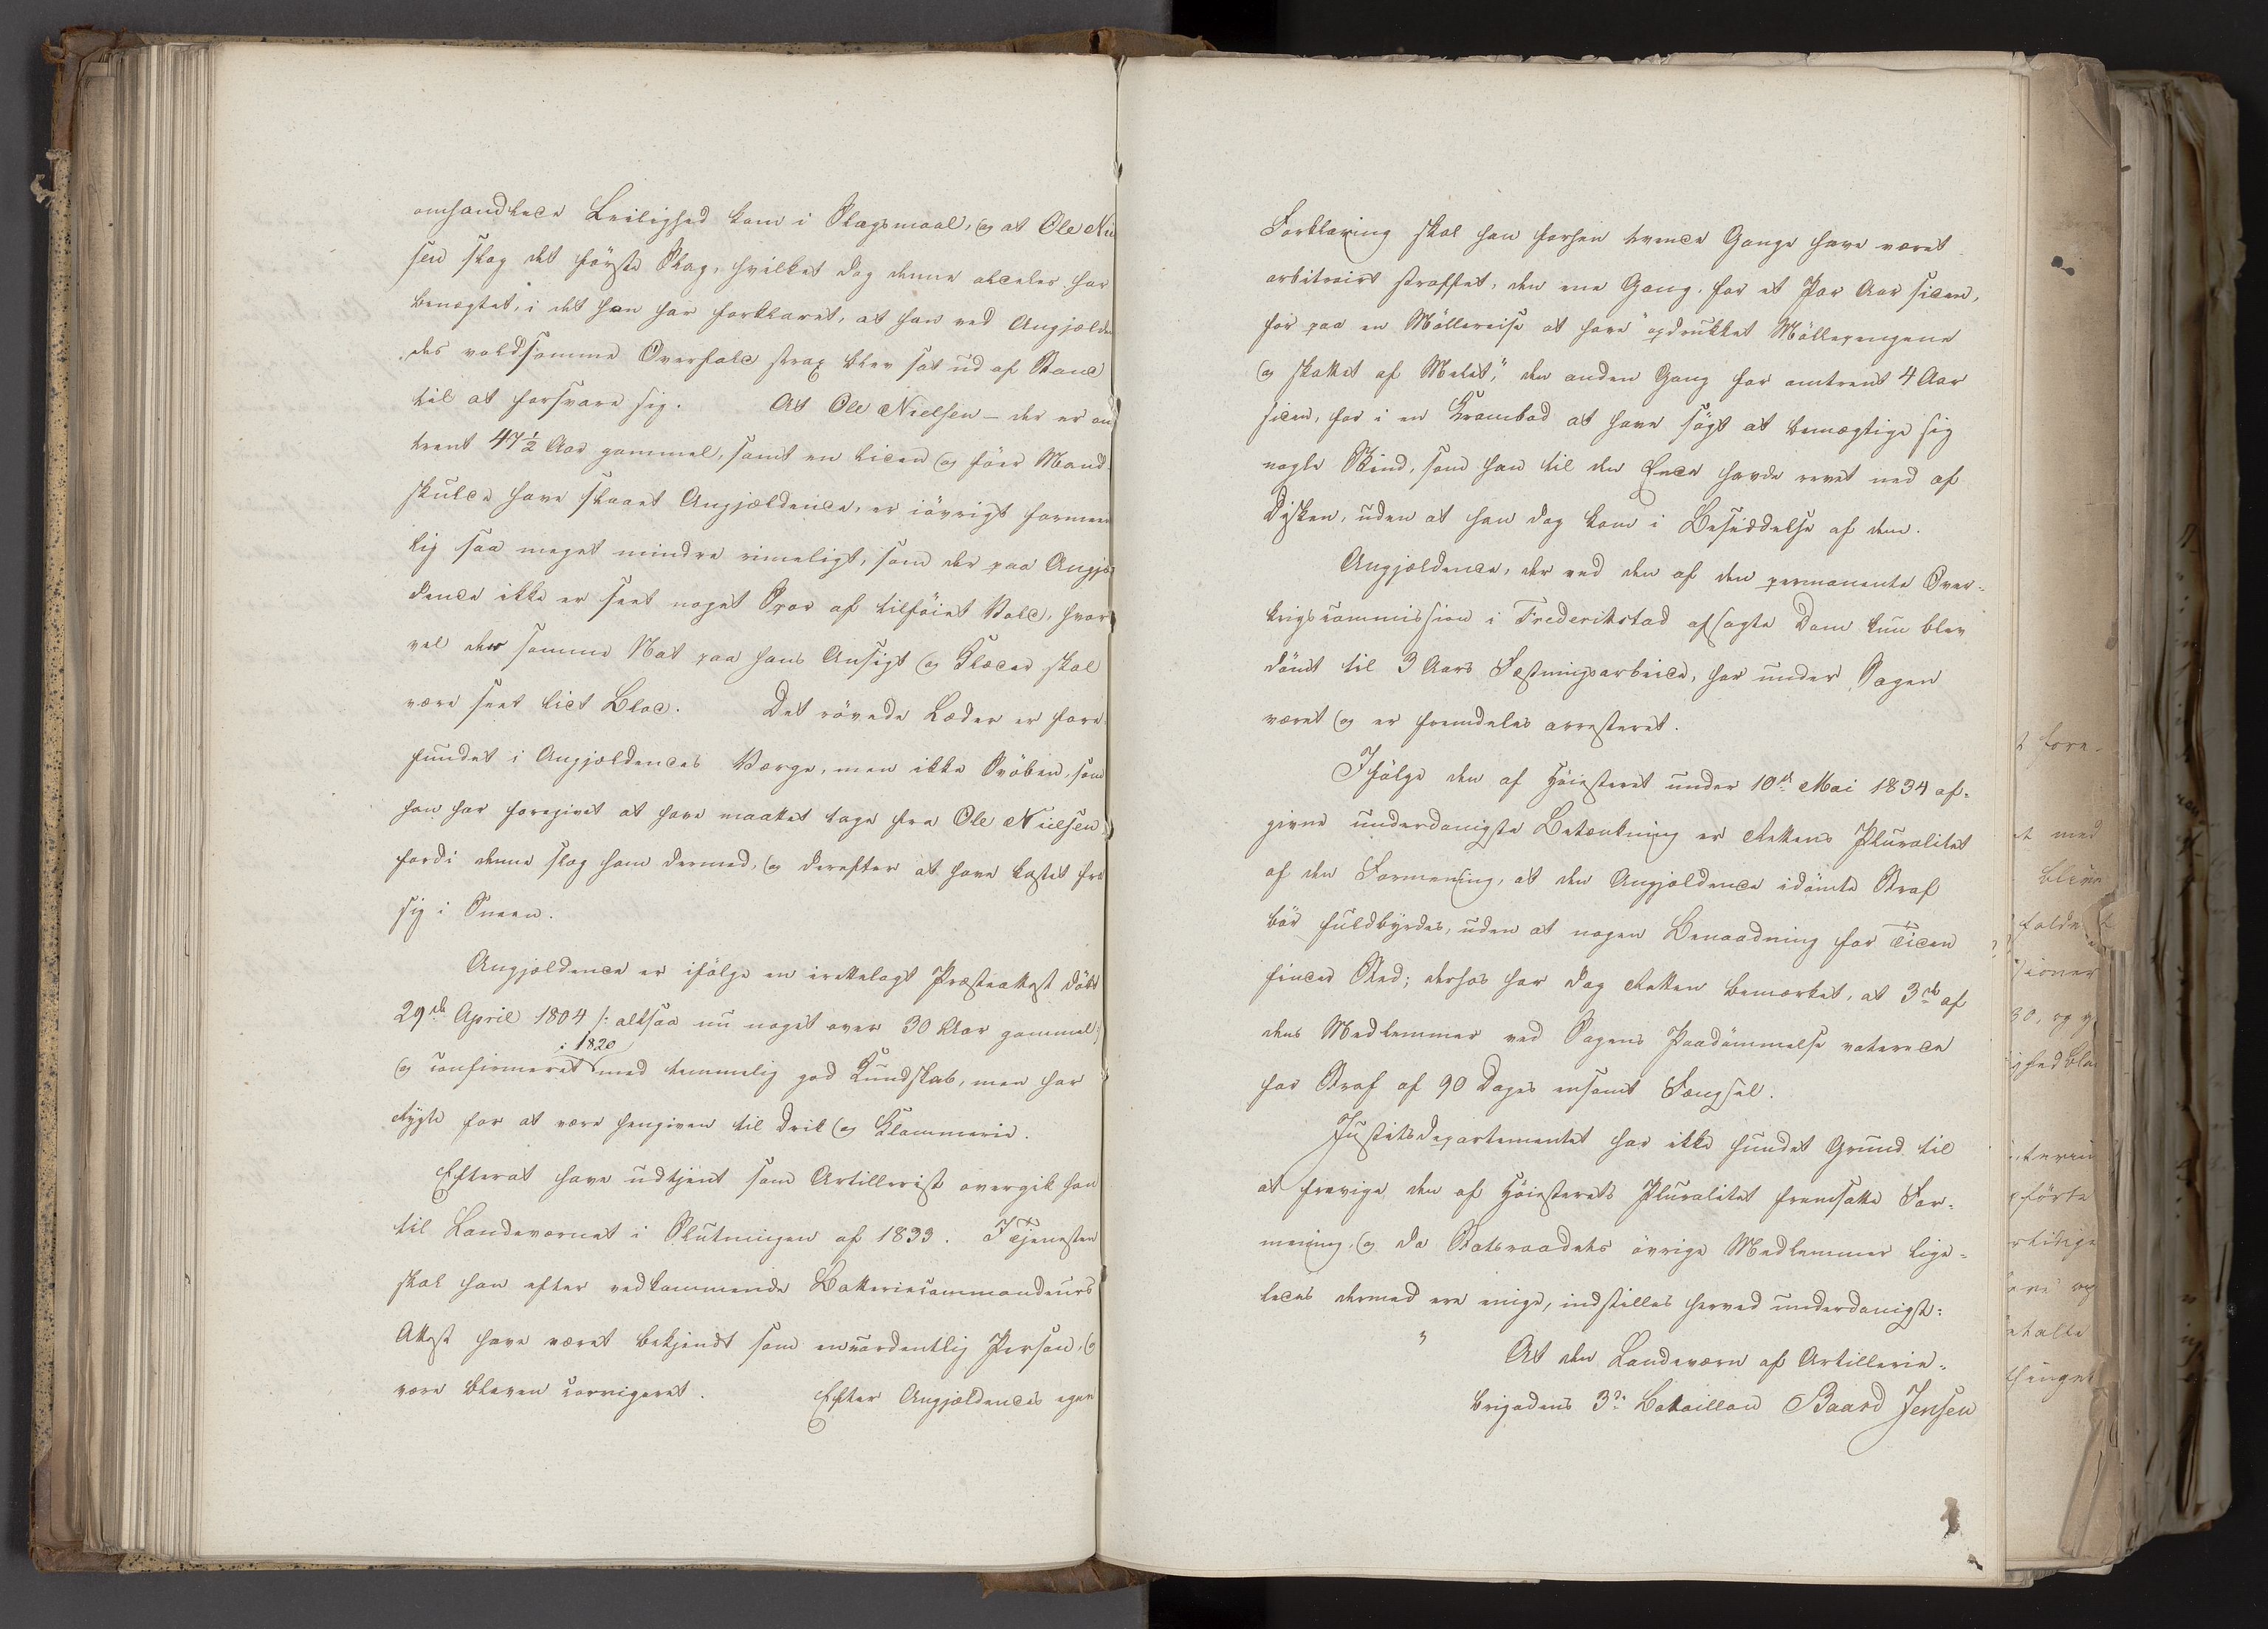 omhandlede Leilighed kom i Slagsmaal, og at Ole Nie
sen slog det første Slag, hvilket dog denne aldeles har
benægtet, i det han har forklaret, at han ved Angjælden
des voldsomme Overfald strax blev sat ud af Stand
til at forsvare sig. At Ole Nielsen – der er om
trent 47½ Aar gammel, samt en liden og føer Mand
skulde have slaaet Angjældende, er iøvrigt formeent
lig saa meget mindre rimeligt, som der paa Angjæl
dende ikke er seet noget Spor af tilføiet Vold, hvor
vel der samme Nat paa hans Ansigt og Klæder skal
være seet lidt Blod. Det røvede Læder er fore
fundet i Angjældendes Værge, men ikke Svøben, som
han har foregivet at have maattet tage fra Ole Nielsen
fordi denne slog ham dermed, og derefter at have kastet fra
sig i Sneen.
Angjældende er ifølge en irettelagt Præsteattest døbt
29de April 1804 /: altsaa nu noget over 30 Aar gammel
i 1820
og confirmeret med temmelig god Kundskab, men har
Rygte for at være hengiven til Drik og Klammerie.
Efterat have udtjent som Artillerist overgik han
til Landeværnet i Slutningen af 1833. I Tjenesten
skal han efter vedkommende Batteriecommandeurs
Attest have været bekjendt som en uordentlig Person, og
være bleven corrigeret. Efter Angjældendes egen
Forklaring skal han forhen tvende Gange have været
arbitrairt straffet, den ene Gang, for et Par Aar siden,
for paa en Møllereise at have "opdrukket Møllepengene
og skattet af Melet," den anden Gang for omtrent 4 Aar
siden, for i en Krambod at have søgt at bemægtige sig
nogle Skind, som han til den Ende havde revet ned af
Disken, uden at han dog kom i Besiddelse af dem.
Angjældende, der ved den af den permanente Over-
krigscommission i Frederikstad afsagte Dom kun blev
dømt til 3 Aars Fæstningsarbeide, har under Sagen
været og er fremdeles arresteret.
Ifølge den af Høiesteret under 10de Mai 1834 af-
givne underdanigste Betænkning er Rettens Pluralitet
af den Formening, at den Angjældende idømte Straf
bør fuldbyrdes, uden at nogen Benaadning for Tiden
finder Sted; derhos har dog Retten bemærket, at 3de af
dens Medlemmer ved Sagens Paadømmelse voterede
for Straf af 90 Dages eensomt Fængsel.
Justitsdepartementet har ikke fundet Grund til
at fravige den af Høiesterets Pluralitet fremsatte For-
mening, og da Statsraadets øvrige Medlemmer lige-
ledes dermed ere enige, indstilles herved underdanigst:
" At den Landeværn af Artillerie-
brigadens 3die Bataillon Baard Jensen